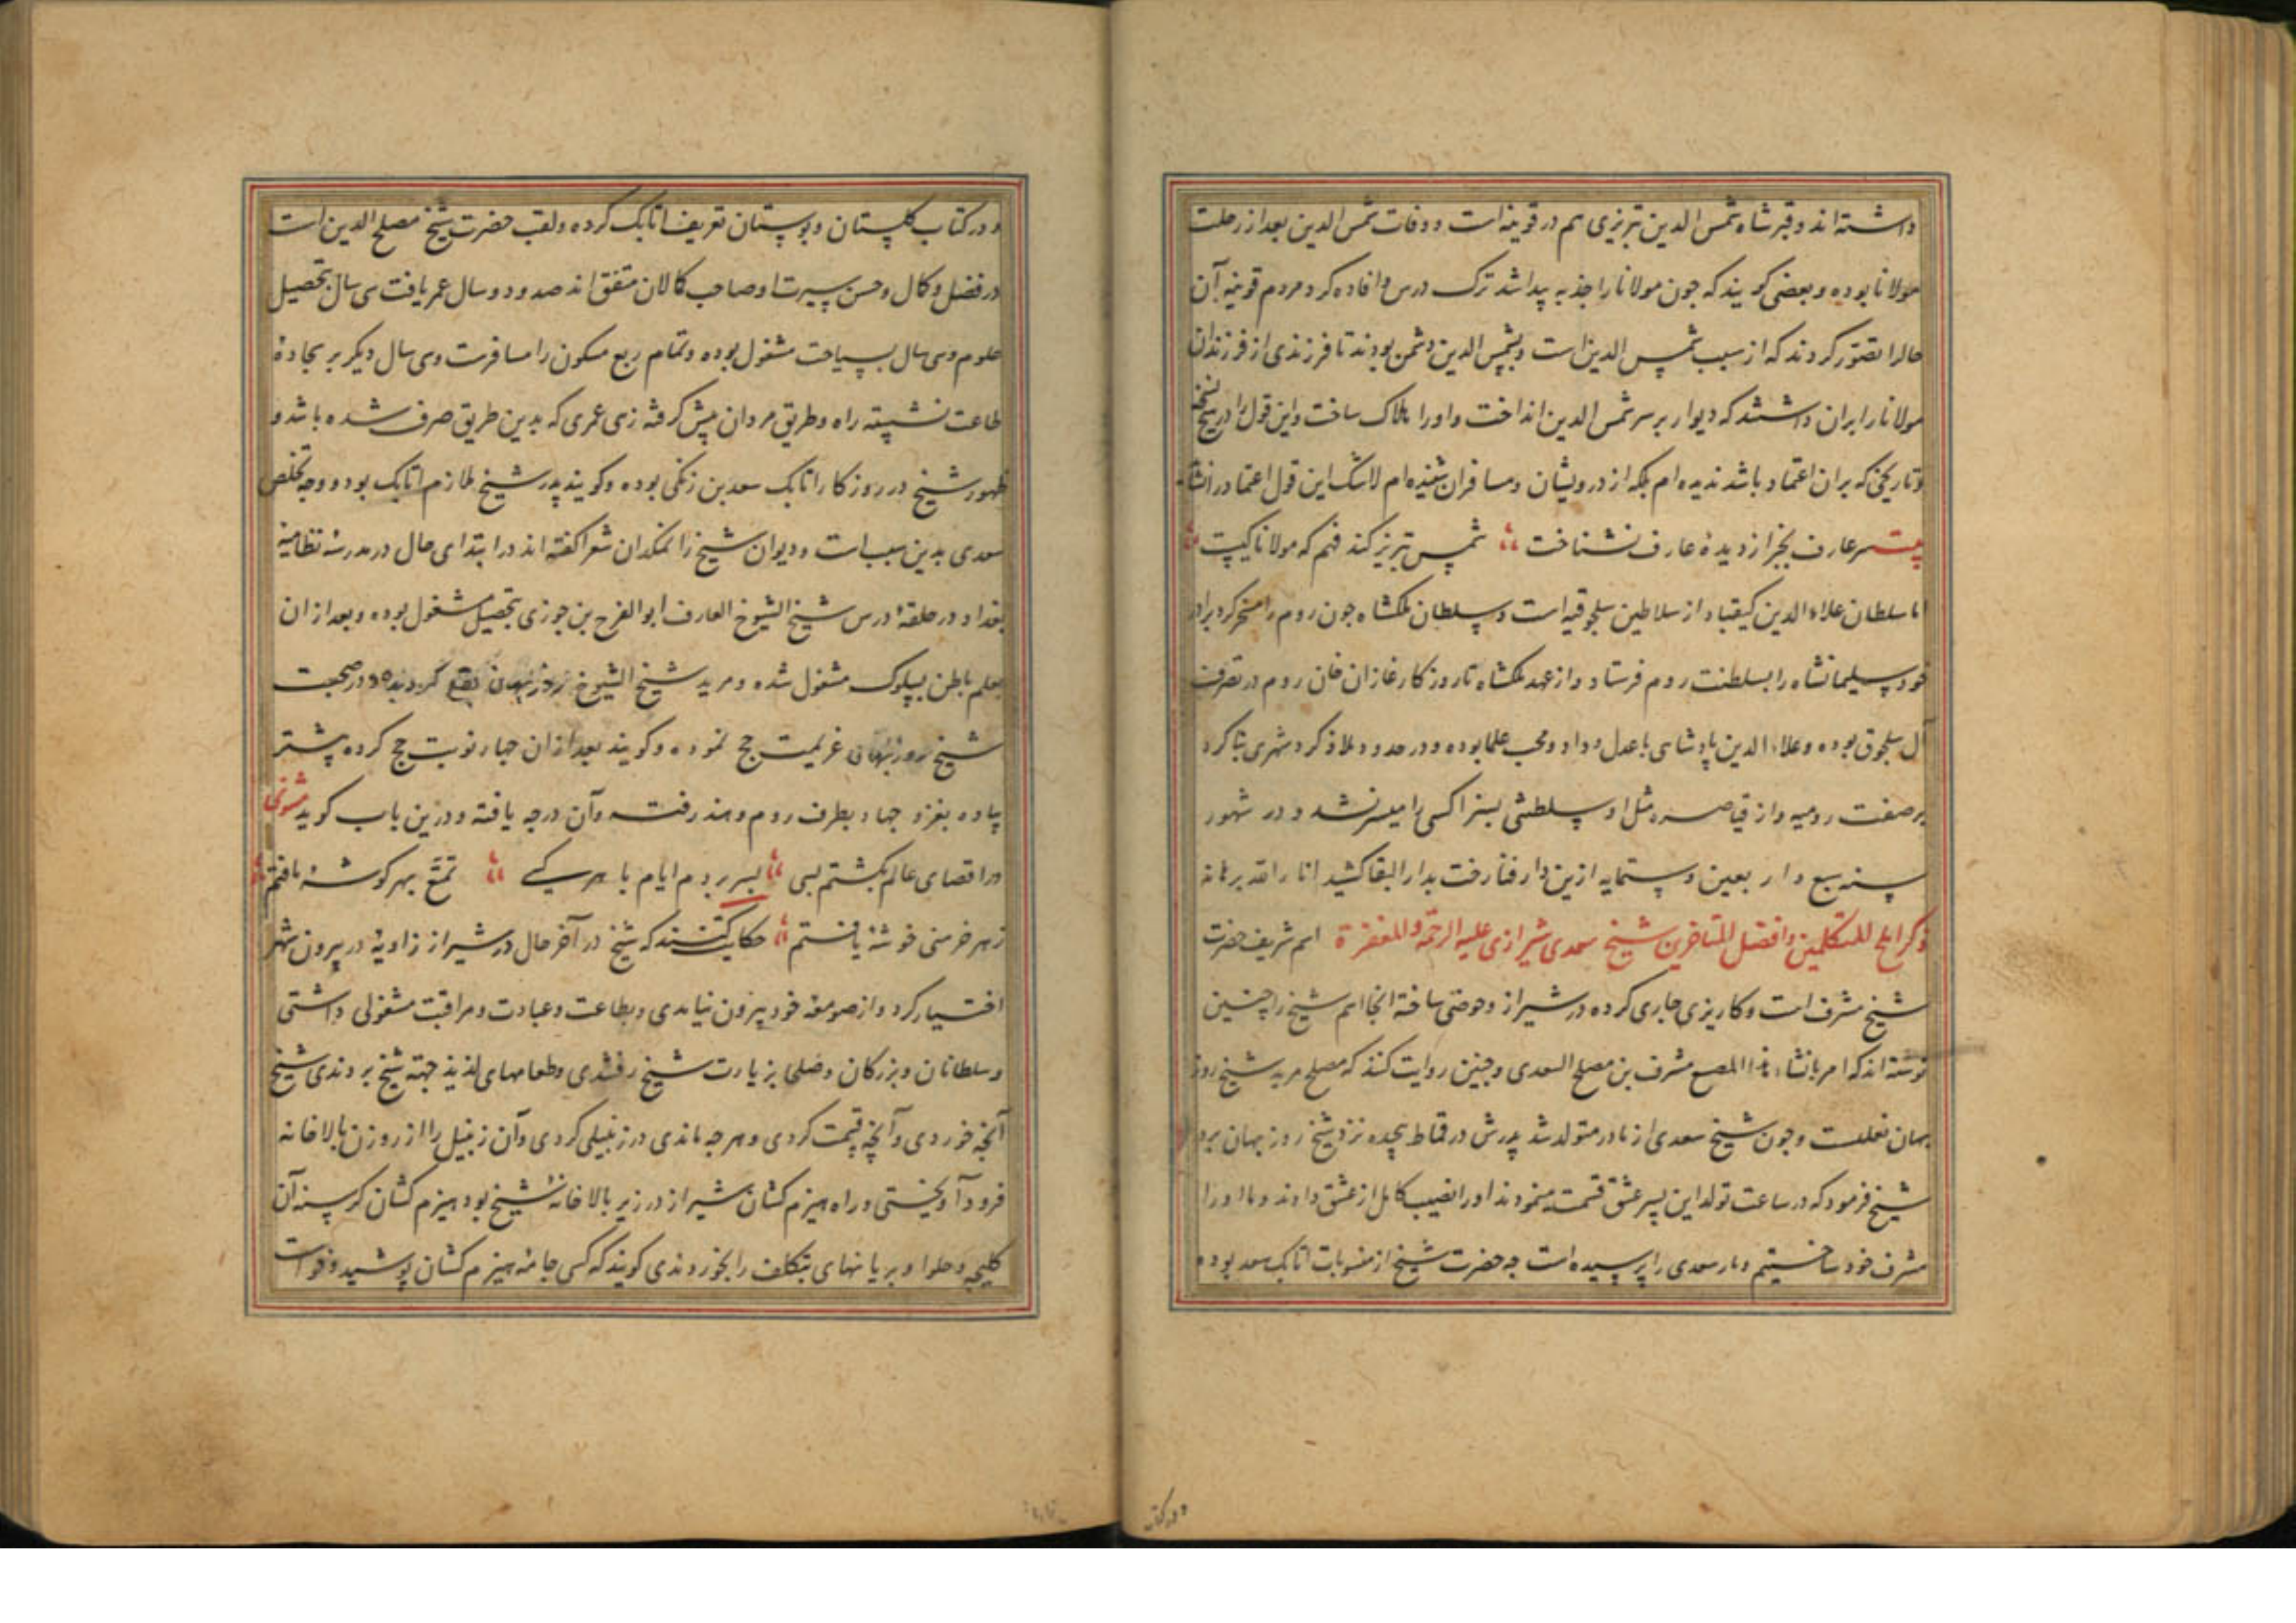 داشته‌اند و قبر شاه شمس الدین تبریزی هم در قونیه است و وفات شمس الدین بعد از رحلت
مولانا بوده و بعضی کویند که جون مولانا را جذبه پیدا شد ترک درس و افاده کرد مردم قونیه آن
حالرا تصور کردند که از سبب شمس الدین است و بشمس الدین دشمن بودند تا فرزندی از فرزندان
مولانا را بران داشتند که دیوار بر سر شمس الدین انداخت و او را هلاک ساخت و این قول را در هیچ نسخه
و تاریخی که بران اعتماد باشد ندیده‌ام بلکه از درویشان و مسافران شنیده‌ام لاشک این قول اعتماد را نشاید
بیت سر عارف بجز از دیدهٔ عارف نشناخت شمس تبریز کند فهم که مولانا کیست
اما سلطان علاء الدین کیقباد از سلاطین سلجوقیه است و سلطان ملکشاه جون روم را مسخر کرد برادر
خود سلیمانشاه را بسلطنت روم فرستاد و از عهد ملکشاه تا روزکار غازان خان روم در تصرف
آل سلجوق بوده و علاء الدین پادشاهی با عدل و داد و محب علما بوده و در حدود ملاذ کرد شهری بنا کرد
بر صفت رومیه و از قیاصره مثل او سلطنتی بسزا کسی را میسر نشد و در شهور
سنه سبع و اربعین و ستمایه ازین دار فنا رخت بدار البقا کشید انا را الله برهانه
ذکر املح المتکلمین و افضل المتاخرین شیخ سعدی شیرازی علیه الرحمة و المغفرة اسم شریف حضرت
شیخ مشرف است و کاریزی جاری کرده در شیراز و حوضی ساخته آنجا اسم شیخ را چنین
نوشته‌اند که امر بانشاء هذا المصنع مشرف بن مصلح السعدی و جنین روایت کنند که مصلح مرید شیخ روز
بهان بقلیست و جون شیخ سعدی از مادر متولد شد پدرش در قماط پیچیده نزد شیخ روز بهان برد
شیخ فرمود که در ساعت تولد این پسر عشق قسمت مینمودند او را نصیب کامل از عشق دادند و ما او را
مشرف خود ساختیم و مار سعدی را پرسیده است جه حضرت شیخ از منسوبات اتابک سعد بوده
و در کتاب
و در کتاب کلستان و بوستان تعریف اتابک کرده و لقب حضرت شیخ مصلح الدین است
در فضل و کمال و حسن سیرت او صاحب کمالان متفق‌اند صد و دو سال عمر یافت سی سال بتحصیل
علوم و سی سال بسیاحت مشغول بوده و تمام ربع مسکون را مسافرت و سی سال دیکر بر سجادهٔ
طاعت نشسته راه و طریق مردان پیش کرفته زهی عمری که بدین طریق صرف شده باشد و
ظهور شیخ در روزکار اتابک سعد بن زنکی بوده و کویند پدر شیخ ملازم اتابک بود و وجه تخلص
سعدی بدین سبب است و دیوان شیخ را نمکدان شعرا کفته‌اند در ابتدای حال در مدرسهٔ نظامیهٔ
بغداد در حلقهٔ درس شیخ الشیوخ العارف ابو الفرح بن جوزی بتحصیل مشغول بوده و بعد از ان
بعلم باطن بسلوک مشغول شده و مرید شیخ الشیوخ روزبهان بقلی کردیده و در صحبت
شیخ روزبهان عزیمت حج نموده و کویند بعد از ان جهار نوبت حج کرده پیشتر
پیاده بغزو جهاد بطرف روم و هند رفته و آن درجه یافته و درین باب کوید مثنوی
در اقصای عالم بکشتم بسی بسر بردم ایام با هر کسے تمتع بهر کوشهٔ یافتم
ز هر خرمنی خوشهٔ یافتم حکایت کنند که شیخ در آخر حال در شیراز زاویهٔ در بیرون شهر
اختیار کرد و از صومعه خود بیرون نیامدی و بطاعت و عبادت و مراقبت مشغولی داشتی
و سلطانان و بزرکان و صلحا بزیارت شیخ رفتندی و طعامهای لذیذ جهة شیخ بردندی شیخ
آنجه خوردی و آنچه قیمت کردی و هر جه ماندی در زنبیلی کردی و آن زنبیل را از روزن بالا خانه
فرود آویختی و راه هیزم کشان شیراز در زیر بالا خانهٔ شیخ بود هیزم کشان کرسنه آن
کلیچه و حلوا و بریانهای بتکلف را بخوردندی کویند که کسی جامهٔ هیزم کشان پوشید و خواست